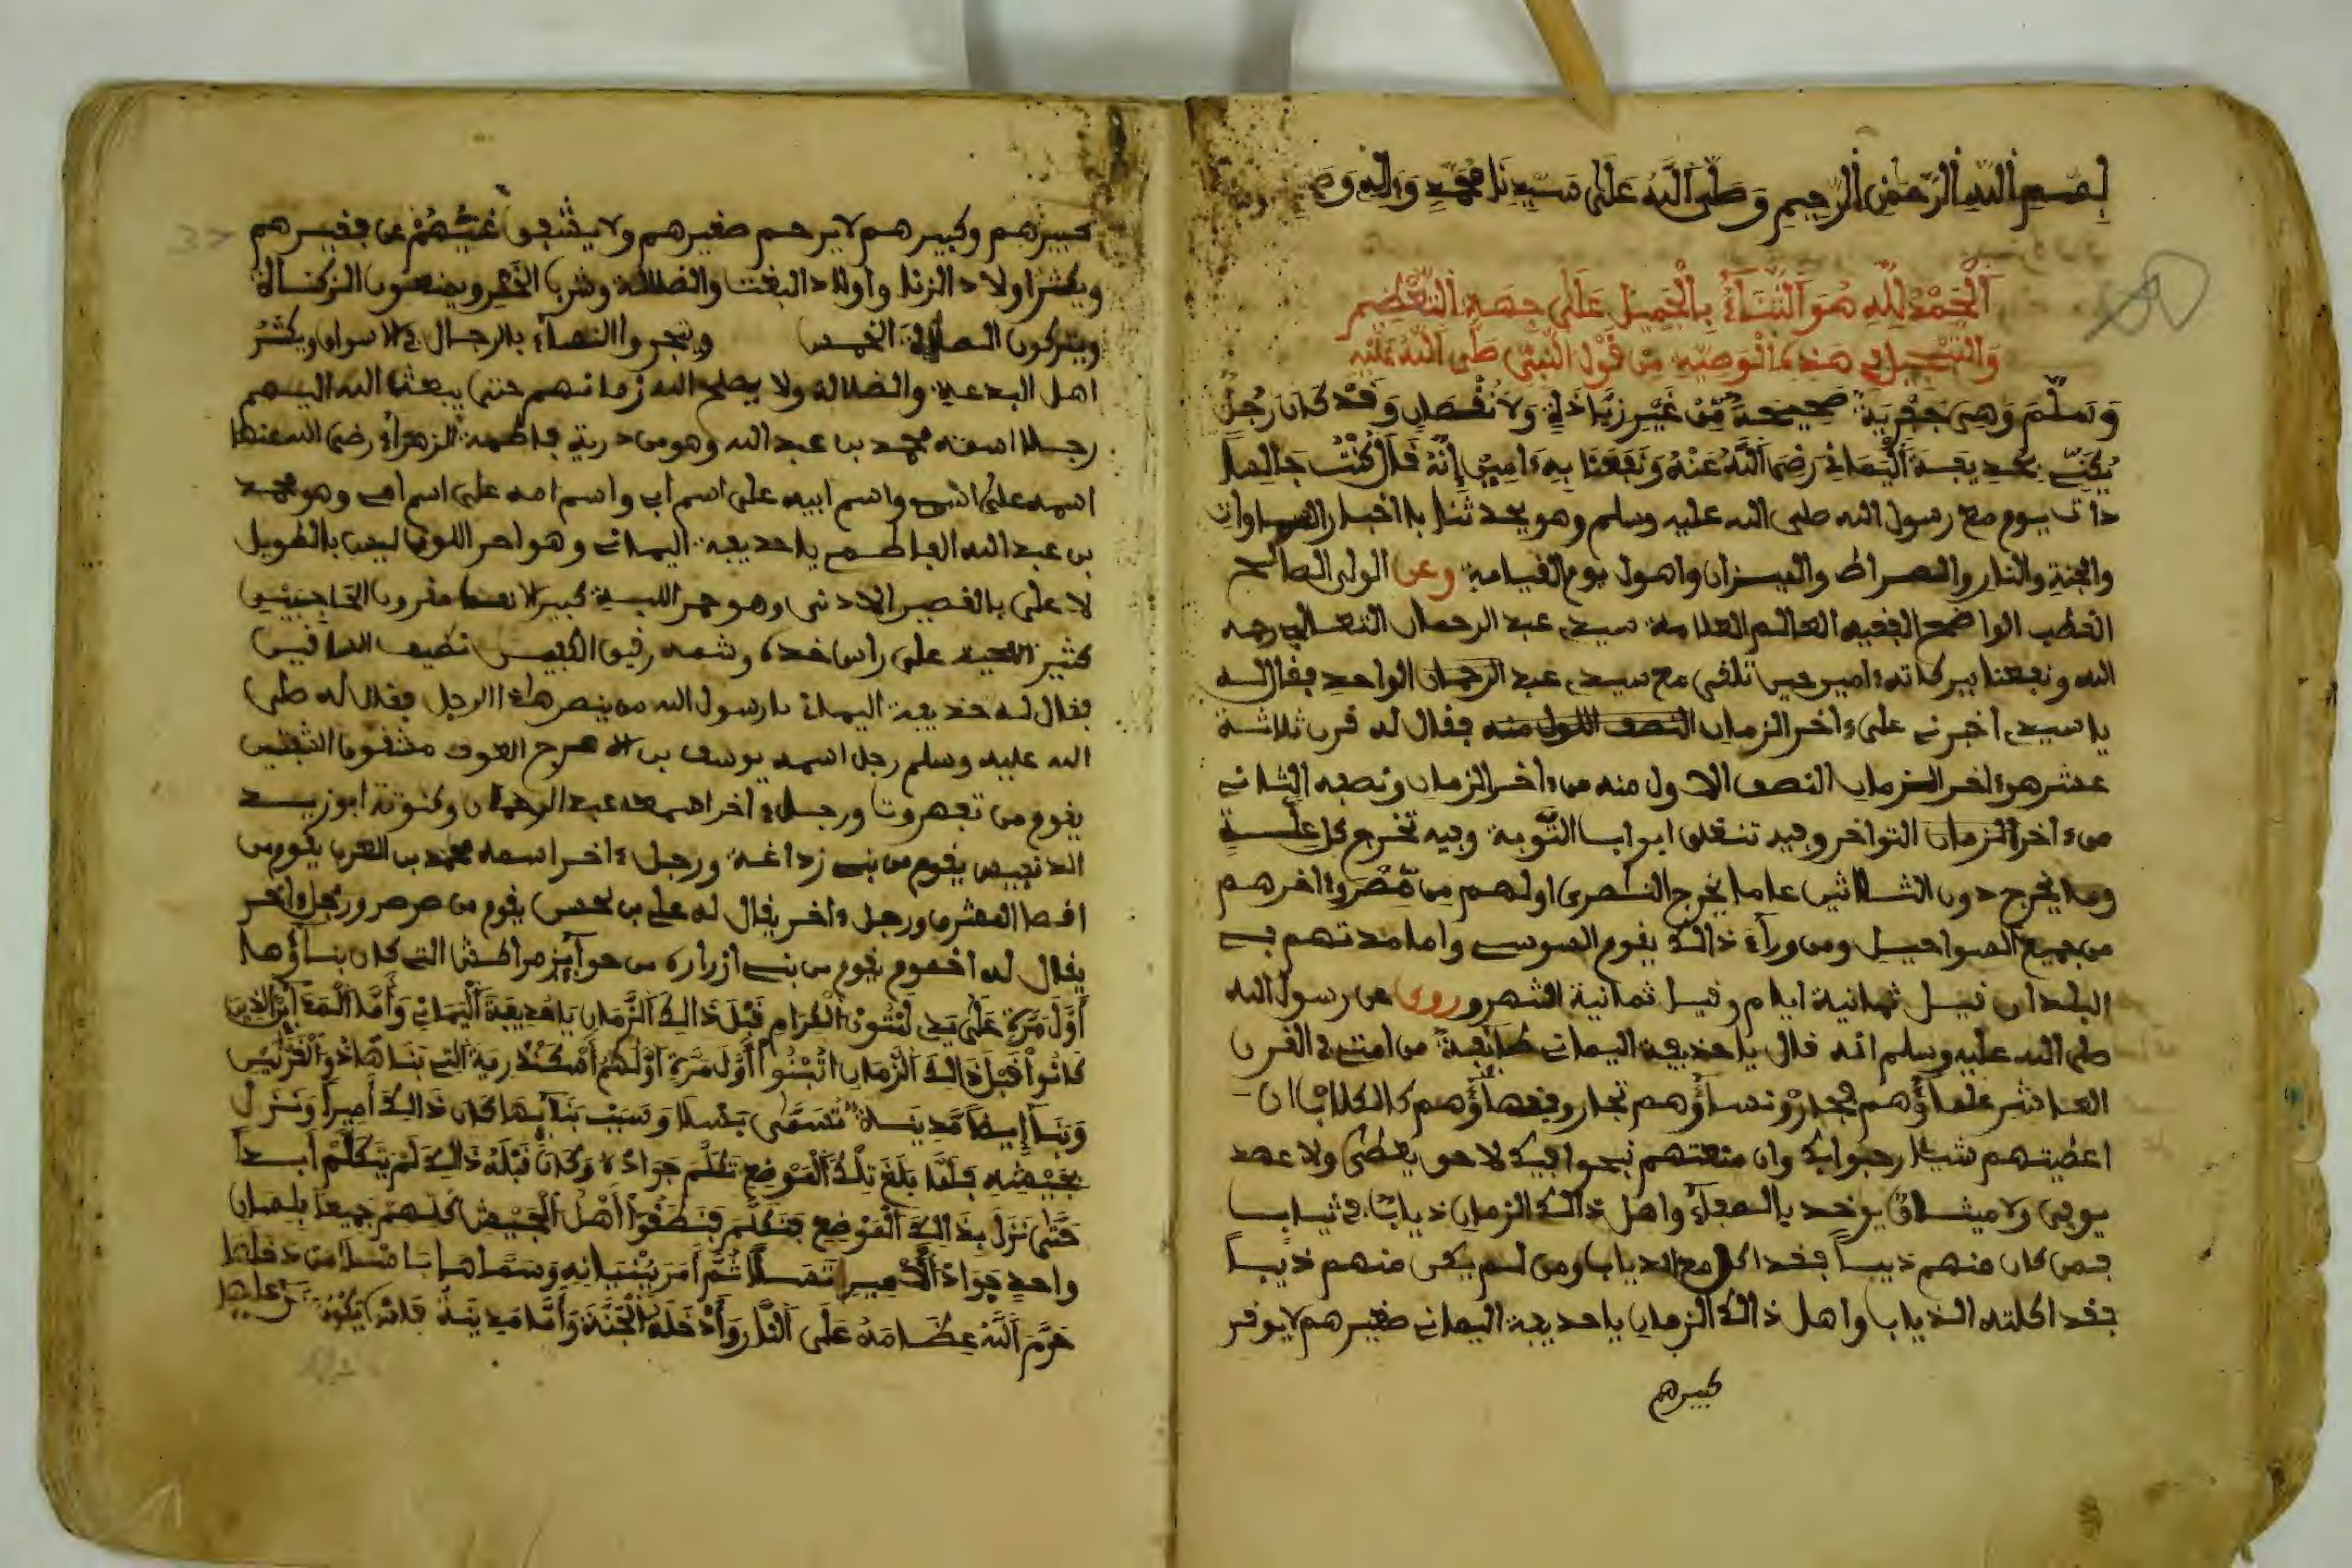 بسم الله الرحمن الرحيم وصلى الله على سيدنا محمد وءاله
الحمد لله هو الثناء بالجميل على جهة التعظيم
والتبجيل في هذه الوصية من قول النبي صلى الله عليه
وسلم وهي جفرية صحيحة من غير زيادة ولا نقصان وقد كان رجل
يكنى بحديفة اليماني رضي الله عنه ونفعنا به ءامين إنه قال كنت جالسا
دات يوم مع رسول الله صلى الله عليه وسلم وهو يحدثنا باخبار السماوات
والجنة والنار والصراط والميزان واهول يوم القيامة وعن الولي الصالح
القطب الواضح الفقيه العالم العلامة سيدي عبد الرحمان الثعالبي رحمه
الله ونفعنا ببركاته ءامين حين تلقى مع سيدي عبد الرحمان الواحد فقال له
يا سيدي اخبرني على ءاخر الزمان النصف اللول منه فقال له قرن ثلاثة
عشر هو ءاخر الزمان النصف الاول منه من ءاخر الزمان ونصفه الثاني
من ءاخر الزمان التواخر وفيه تنغلق ابواب التوبة وفيه تخرج كل
وما يخرج دون الثلاثين عاما يخرج النصرى اولهم من مصر وءاخرهم
من جميع السواحيل ومن وراء ذالك يقوم السوسي واما مدتهم في
البلدان قيل ثمانية ايام وقيل ثمانية اشهر وروي عن رسول الله
صلى الله عليه وسلم انه قال يا حذيفة اليماني طايفة من امتي في القرن
العاشر علماؤهم فجار ونساؤهم تجار وفقهاؤهم كالكلاب ان
اعطيتهم شيئا رحبوا بك وان منعتهم نبحوا فيك لا حق يعطى ولا عهد
يوفى ولا ميثاق يوخد بالسفهاء واهل ذالك الزمان ذيابا في ثيابا
فمن كان منهم ذيبا فقد اكل مع الذياب ومن لم يكن منهم ذيبا
فقد اكلته الذياب واهل ذالك الزمان يا حديفة اليماني صغيرهم لا يوقر
كبيرهم
كبيرهم وكبيرهم لا يرحم صغيرهم ولا يشفق غنيهم عن فقيرهم
ويكثر اولاد الزنا واولاد البغت والضلالة وشرب الخمر ويمنعون الزكاة
ويتركون الصلاة الخمس ويتجروا النساء بالرجال في الاسواق ويكثر
اهل البدعة والضلالة ولا يصلح الله زمانهم حتى يبعث الله اليهم
رجلا اسمه محمد بن عبد الله وهو من درية فاطمة الزهراء رضي الله عنها
اسمه على اسمي واسم ابيه على اسم ابي واسم امه على اسم امي وهو محمد
بن عبد الله الفاطمي يا حديفة اليماني وهو احر اللون ليس بالطويل
لا على بالقصير الادنى وهو حمر اللبسة كبير الانف مقرون الحاجبين
كثير اللحية على راس خده وشمه رقيق الكفين نضيف الساقين
فقال له حذيفة اليماني يا رسول الله من ينصر هاذا الرجل فقال له صلى
الله عليه وسلم رجل اسمه يوسف بن الاعرج العوف مشقوق الشفتين
يقوم من تمهروت ورجل ءاخر اسمه عبد الرحمان وكنوته ابوزيد
يقوم من بني زداغة ورجل ءاخر اسمه محمد بن العرب يقوم من
اقصا المشرق ورجل ءاخر يقال له علي بن يقوم من صرصر ورجل ءاخر
يقال له اخصوم يقوم من بني ازراره من حوايز مراكش التي كان بناؤها
أول مرة على يدي لمتون الكرام قبل ذالك الزمان يا حديفة اليماني وأما المداين الذين
كانوا قبل ذالك الزمان اتبنوا أول مرة أولهم أسكندرية التي بناها ذو القرنين
وبنا أيضا مدينة تسمى بفسا وسبب بنائها كان ذالك أميرا ونزل
بجيشه فلما بلغ تلك الموضع تكلم جواده وكان قبله ذالك لم يتكلم أبدا
حتى نزل بذالك الموضع فتكلم فنطقوا أهل الجيش كلهم جميعا بلسان
واحد جواد الأمير ثم أمر ببنيانه وسماها من دخلها
حرم الله عظامه على النار وأدخله الجنة وأما مدينة